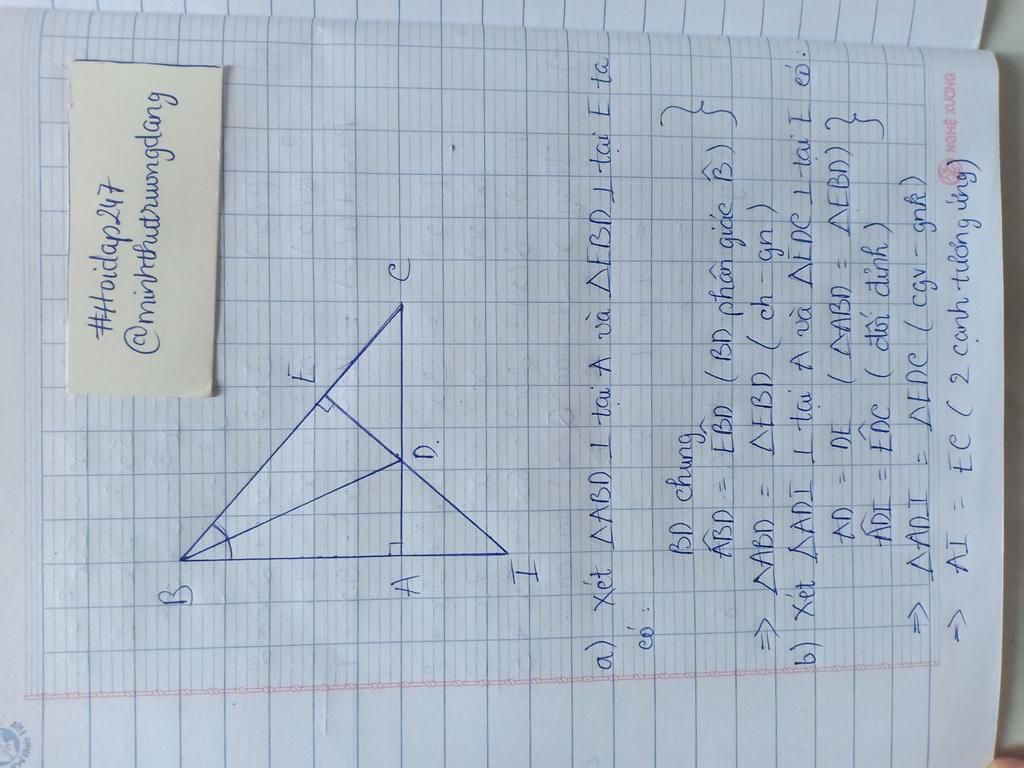 #Hoidap247
@minhthutruongdang
B
E
C
D.
A
I
a) Xét △ABD ⊥ tại A và △EBD ⊥ tại E ta
có:
BD chung
ABD̂ = EBD̂ ( BD phân giác B̂ )
=> △ABD = △EBD ( ch - gn )
b) Xét △ADI ⊥ tại A và △EDC ⊥ tại E có:
AD = DE ( △ABD = △EBD )
ADÎ = EDĈ ( đối đỉnh )
=> △ADI = △EDC ( cgv - gnk )
=> AI = EC ( 2 cạnh tương ứng )
NGHỆ XƯƠNG